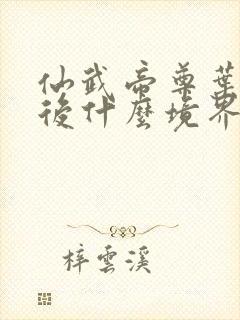 仙武帝尊葉
後什麼境界
梓雲溪